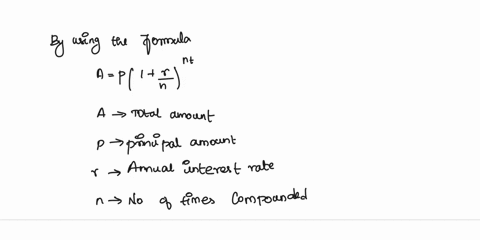 By using the formula
A = P(1 + r/n)^nt
A → Total amount
P → principal amount
r → Annual interest rate
n → No of times compounded